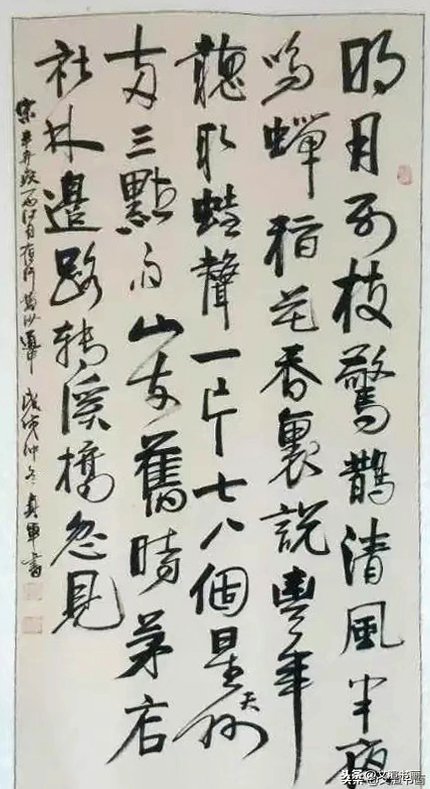 明月别枝驚鵲清風半夜
鳴蟬稻花香裏說豐年
聽取蛙聲一片七八個星天外
两三點雨山前舊時茅店
社林邊路轉溪橋忽見
宋辛弃疾西江月夜行黄沙道中 戊戌仲冬 軍書
头条 @文书画